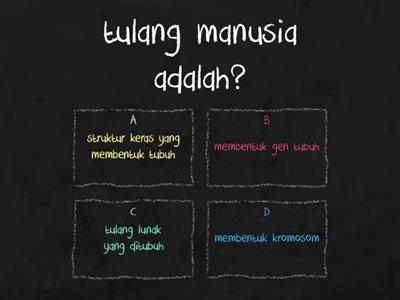 tulang manusia
adalah?
A
struktur keras yang
membentuk tubuh
B
membentuk gen tubuh
C
tulang lunak
yang ditubuh
D
membentuk kromosom